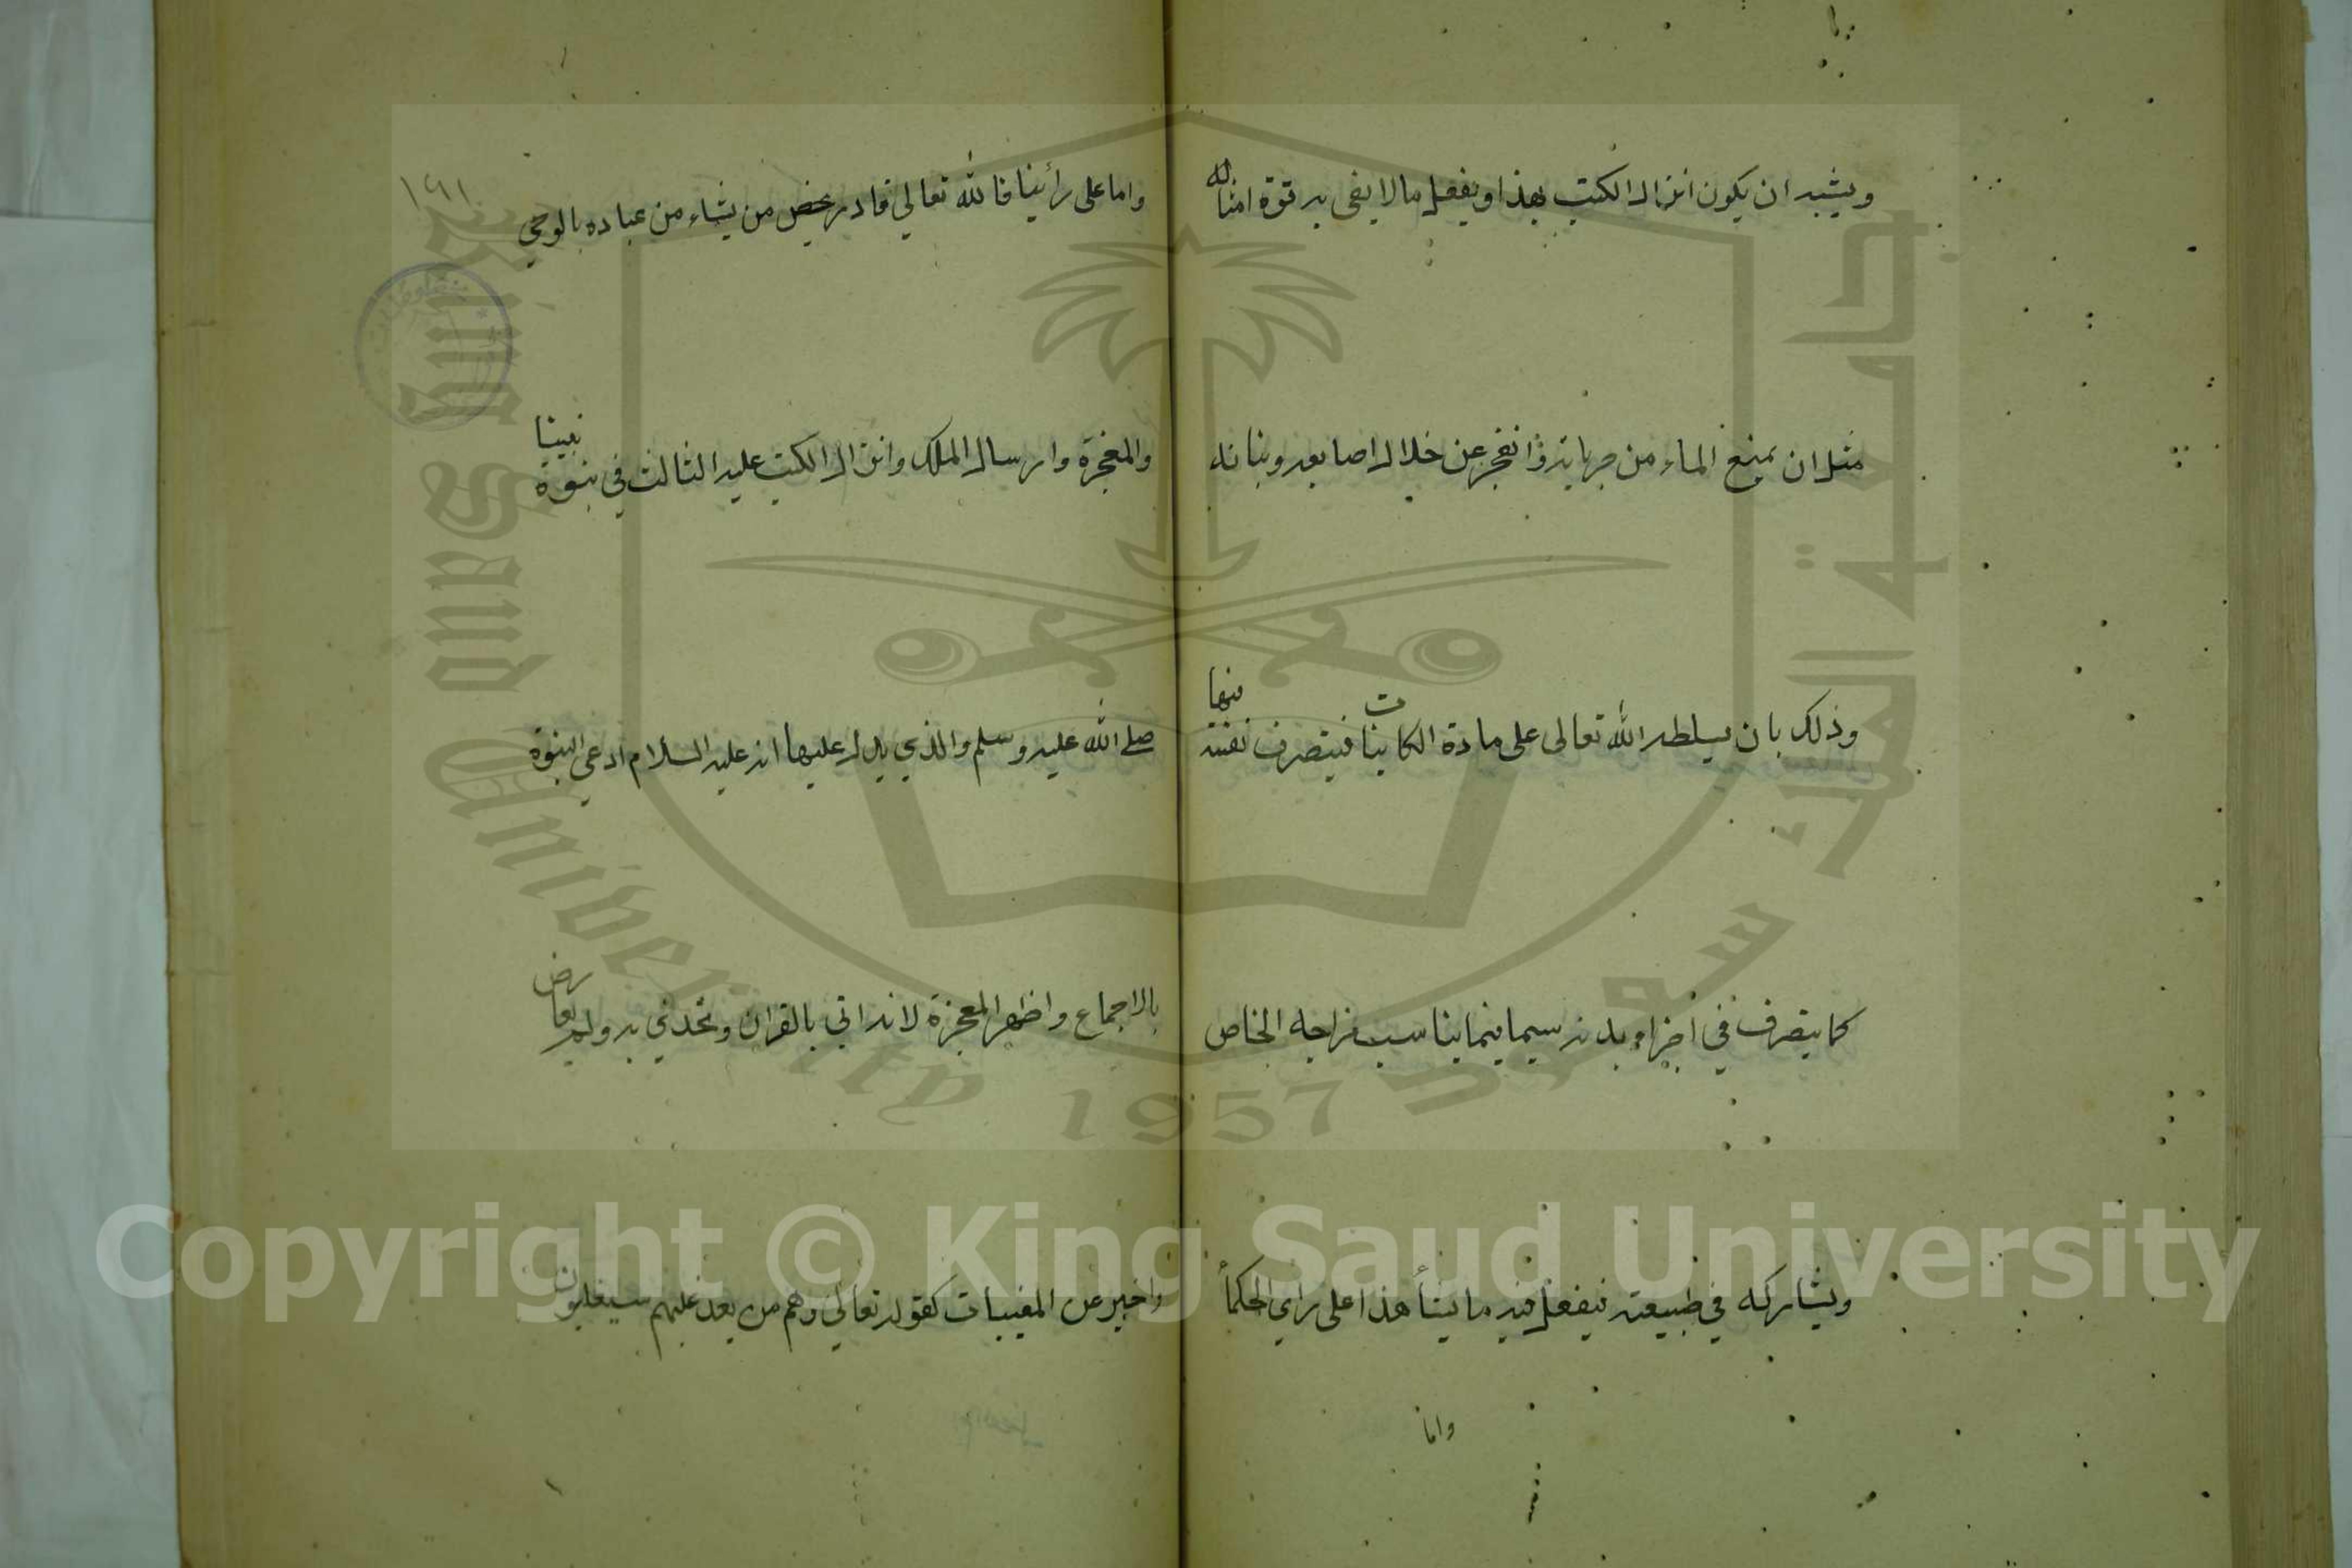 ويشبه ان يكون انزال الكتب بهذا ويفعل مالا يفى به قوة امثاله
مثل ان يمنع الماء من جريانه وانفجر عن خلال اصابعه وبنانه
وذلك بان يسلطه الله تعالى على مادة الكاينات فيتصرف نفسه فيها
كما يتصرف في اجزاء بدنه سيما فيما يناسب مزاجه الخاص
ويشاركه في طبيعته فيفعل فيه ما يشأ هذا على رأي الحكمأ
واما
واما على رأينا فالله تعالي قادر يخص من يشاء من عباده بالوحي
والمعجزة وارسال الملك وانزال الكتب عليه الثالث في نبوة نبينا
صلے الله عليه وسلم والذي يدل عليها انه عليه السلام ادعي النبوة
بالاجماع واظهر المعجزة لانه اتي بالقران وتحدي به ولم يعارض
واخبر عن المغيبات كقوله تعالي وهم من بعد غلبهم سيغلبون
١٦١
جامعة الملك سعود
King Saud University 1957
Copyright © King Saud University